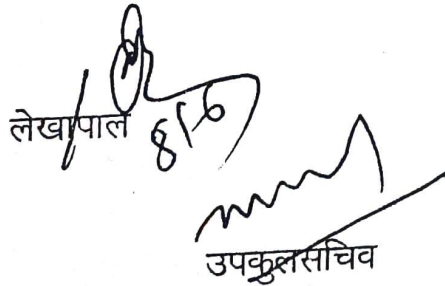 लेखापाल
8/6
उपकुलसचिव